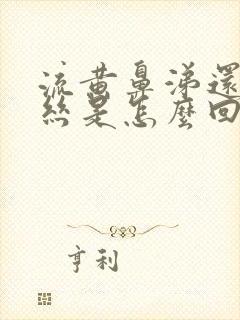 流黃鼻涕還
絲是怎麼回
亨利